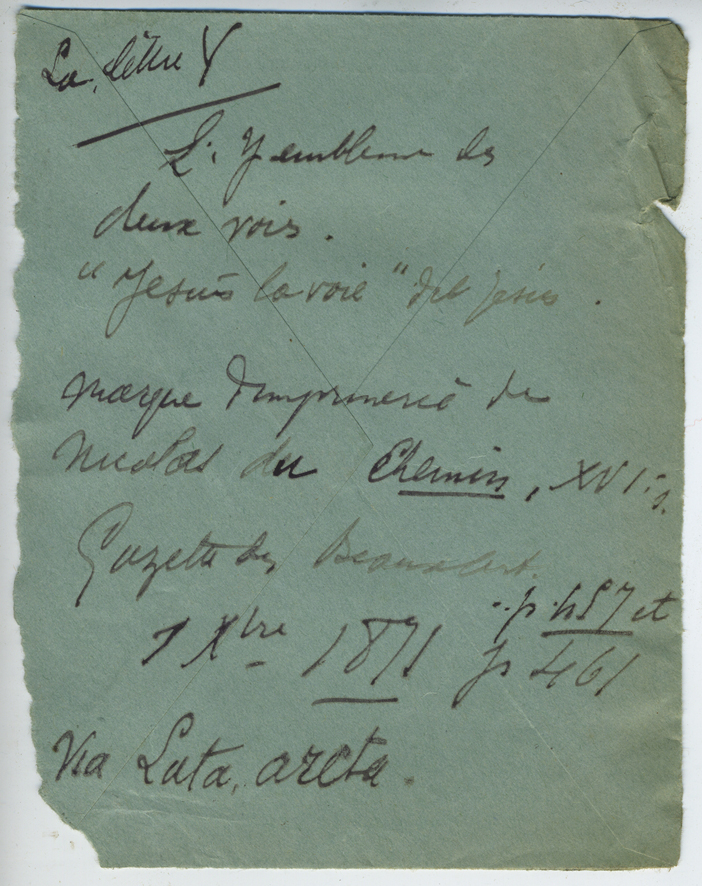 La lettre Y
L'Y embleme des
deux voies.
"Jesus la voie" dit Jésus.
marque d'imprimerie de
Nicolas du Chemin, XVIe s.
Gazette des Beaux Art.
p. 457 et
1 Xbre 1871 p 461
Via Lata, arcta.